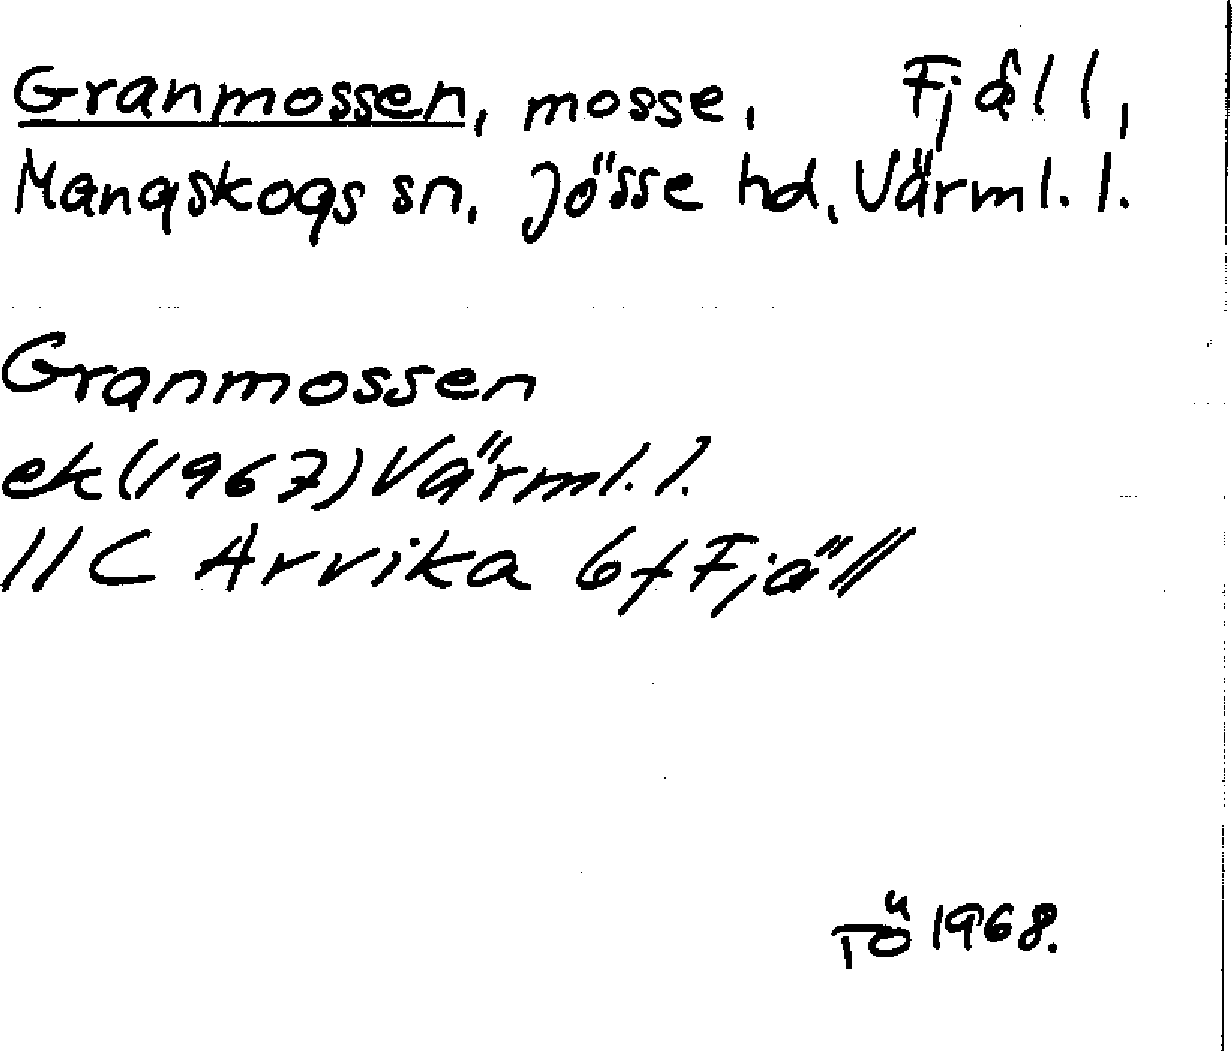 Granmossen, mosse, Fjäll,
Mangskogs sn, Jösse hd, Värml. l.
Granmossen
ek (1967) Värml. l.
11C Arvika 6f Fjäll
TÖ 1968.